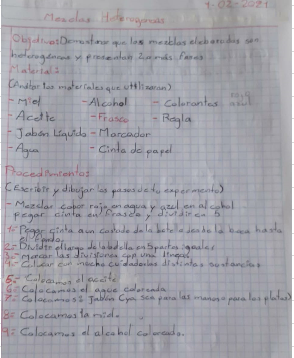 9-02-2021
Mezclas Heterogeneas
Objetivo: Demostrar que las mezclas elaboradas son
heterogéneas y presentan 2 o más fases
Material:
(Anotar los materiales que utilizaron)
- Miel - Alcohol - Colorantes
- Aceite - Frasco - Regla
- Jabón Líquido - Marcador
- Agua - Cinta de papel
Procedimientos
(Escribir y dibujar los pasos de tu experimento)
- Mezclar color rojo en agua y azul en alcohol
pegar cinta en frasco y dividir en 5
1- Pegar cinta a un costado de la botella desde la boca hasta
el fondo
2- Dividir el largo de la botella en 5 partes iguales
3- Marcar las divisiones con una línea
4- Colocar con mucho cuidado las distintas sustancias
5- Colocamos el aceite
6- Colocamos el agua colorada
7- Colocamos Jabón (ya sea para las manos o para los platos)
8- Colocamos la miel
9- Colocamos el alcohol coloreado.